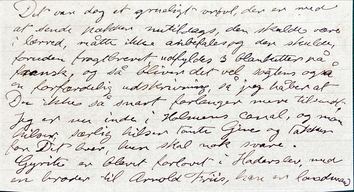 Det var dog et grueligt vrøvl, der er med
at sende pakken nutildags, den skulde være
i lærred, måtte ikke anbefales og den skulde,
foruden fragtbrevet udfyldes 3 blanketter på
fransk, og så bliver det vel sagtens også
en forfærdelig udskrivning, så jeg håber at
Du ikke så snart forlanger mere tilsendt.
Jeg er nu inde i Holmens Canal, og man
hilser, særlig hilser tante Gine og takker
for Dit brev, hun skal nok svare.
Gyritte er blevet forlovet i Haderslev, med
en broder til Arnold Friis, han er landmand